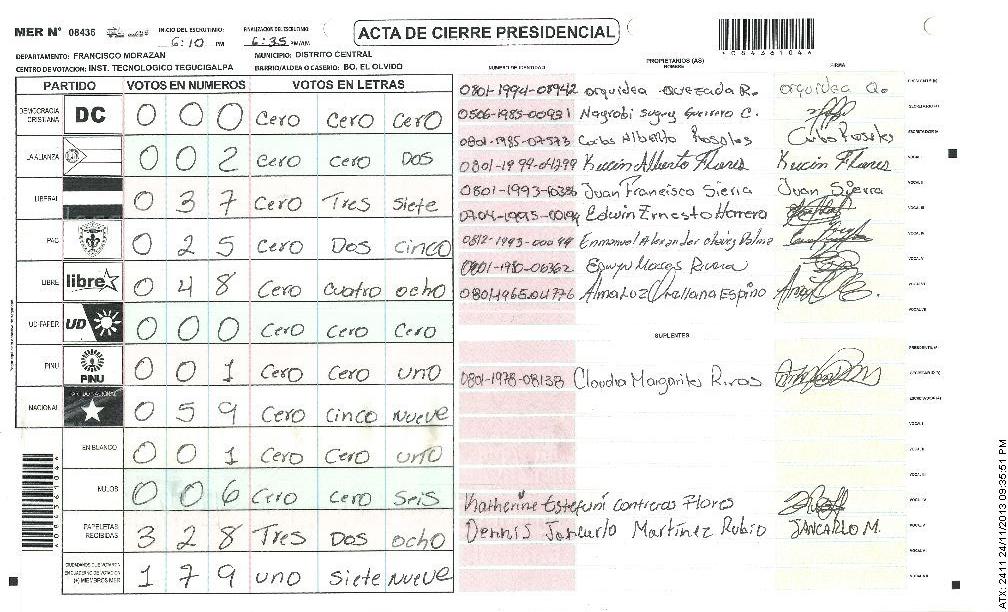 MER N° 08436
INICIO DEL ESCRUTINIO: 6:10 PM
FINALIZACION DEL ESCRUTINIO: 6:35 PM/AM
ACTA DE CIERRE PRESIDENCIAL
DEPARTAMENTO: FRANCISCO MORAZAN
MUNICIPIO: DISTRITO CENTRAL
CENTRO DE VOTACION: INST. TECNOLOGICO TEGUCIGALPA
BARRIO/ALDEA O CASERIO: BO. EL OLVIDO
PARTIDO VOTOS EN NUMEROS VOTOS EN LETRAS
DEMOCRACIA CRISTIANA DC 0 0 0 Cero Cero Cero
LA ALIANZA 0 0 2 Cero Cero Dos
LIBERAL 0 3 7 Cero Tres Siete
PAC 0 2 5 Cero Dos Cinco
LIBRE libre 0 4 8 Cero Cuatro ocho
UD-FAPER UD 0 0 0 Cero Cero Cero
PINU PINU 0 0 1 Cero Cero uno
NACIONAL 0 5 9 Cero cinco nueve
EN BLANCO 0 0 1 Cero Cero uno
NULOS 0 0 6 Cero Cero Seis
PAPELETAS RECIBIDAS 3 2 8 Tres Dos ocho
CIUDADANOS QUE VOTARON EN CUADERNO DE VOTACION (+) MIEMBROS MER 1 7 9 uno Siete nueve
PROPIETARIOS (AS)
NUMERO DE IDENTIDAD NOMBRE FIRMA
0801-1994-08942 orquidea Quezada R. orquidea Q.
0506-1985-00931 Nagrobi Suguy Guerrero C.
0801-1985-07573 Carlos Alberto Rosales Carlos Rosales
0801-1994-04299 Kevin Alberto Flores Kevin Flores
0801-1993-10386 Juan Francisco Sierra Juan Sierra
0704-1995-00194 Edwin Ernesto Herrera
0812-1993-00099 Enmanuel Alexander chavez Palma
0801-1980-06362 Rivera
0801-1965-04776 Alma Luz Orellana Espino
SUPLENTES
0801-1978-08138 Claudia Margarita Rivas
Katherine Estefani Contreras Flores
Dennis Jancarlo Martínez Rubio JANCARLO M.
ATX: 2411 24/11/2013 09:35:51 PM